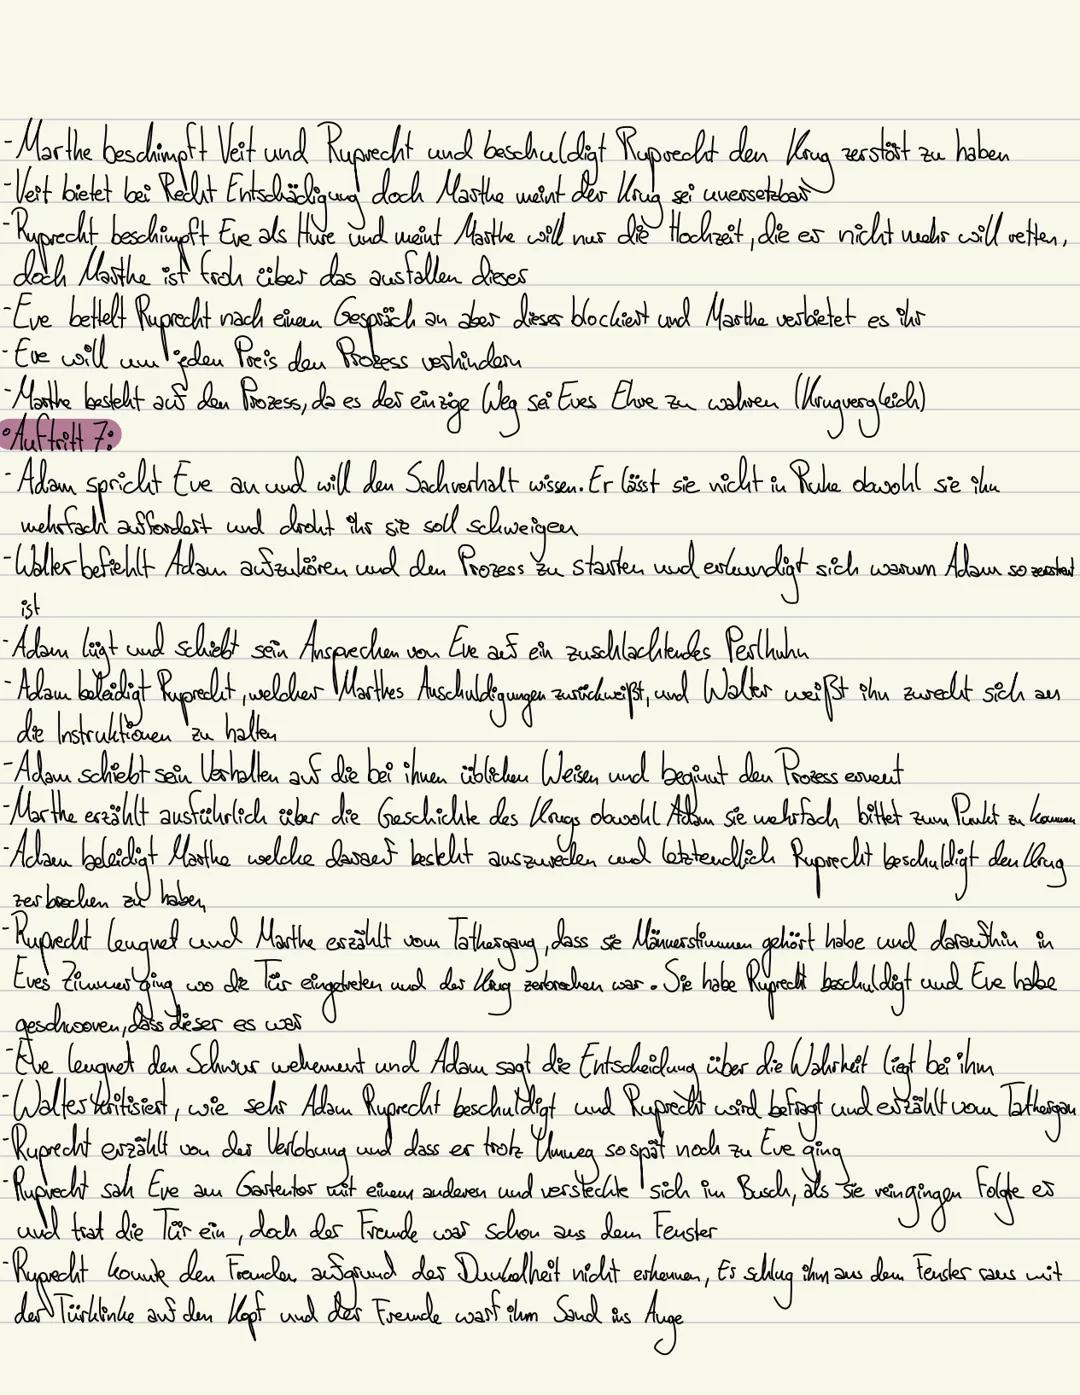 -Marthe beschimpft Veit und Ruprecht und beschuldigt Ruprecht den Krug zerstört zu haben
-Veit bietet bei Recht Entschädigung doch Marthe meint der Krug sei unersetzbar
-Ruprecht beschimpft Eve als Hure und meint Marthe will nur die Hochzeit, die er nicht mehr will retten,
doch Marthe ist froh über das ausfallen dieser
-Eve bettelt Ruprecht nach einem Gespräch an aber dieser blockiert und Marthe verbietet es ihr
-Eve will um jeden Preis den Prozess verhindern
-Marthe besteht auf den Prozess, da es der einzige Weg sei Eves Ehre zu wahren (Krugvergleich)
•Auftritt 7:
-Adam spricht Eve an und will den Sachverhalt wissen. Er lässt sie nicht in Ruhe obwohl sie ihn
mehrfach auffordert und droht ihr sie soll schweigen
-Walter befiehlt Adam aufzuhören und den Prozess zu starten und erkundigt sich warum Adam so zerstreut
ist
-Adam lügt und schiebt sein Ansprechen von Eve auf ein zuschlachtendes Perlhuhn
-Adam beleidigt Ruprecht, welcher Marthes Anschuldigungen zurückweißt, und Walter weißt ihn zurecht sich an
die Instruktionen zu halten
-Adam schiebt sein Verhalten auf die bei ihnen üblichen Weisen und beginnt den Prozess erneut
-Marthe erzählt ausführlich über die Geschichte des Krugs obwohl Adam sie mehrfach bittet zum Punkt zu kommen
-Adam beleidigt Marthe welche darauf besteht auszureden und letztendlich Ruprecht beschuldigt den Krug
zerbrochen zu haben
-Ruprecht leugnet und Marthe erzählt vom Tathergang, dass sie Männerstimmen gehört habe und daraufhin in
Eves Zimmer ging wo die Tür eingetreten und der Krug zerbrochen war. Sie habe Ruprecht beschuldigt und Eve habe
geschworen, dass dieser es war
-Eve leugnet den Schwur wehement und Adam sagt die Entscheidung über die Wahrheit liegt bei ihm
-Walter kritisiert, wie sehr Adam Ruprecht beschuldigt und Ruprecht wird befragt und erzählt vom Tathergan
-Ruprecht erzählt von der Verlobung und dass er trotz Umweg so spät noch zu Eve ging
-Ruprecht sah Eve am Gartentor mit einem anderen und versteckte sich im Busch, als sie reingingen folgte er
und trat die Tür ein, doch der Fremde war schon aus dem Fenster
-Ruprecht konnte den Fremden aufgrund der Dunkelheit nicht erkennen, Er schlug ihm aus dem Fenster raus mit
der Türklinke auf den Kopf und der Fremde warf ihm Sand ins Auge